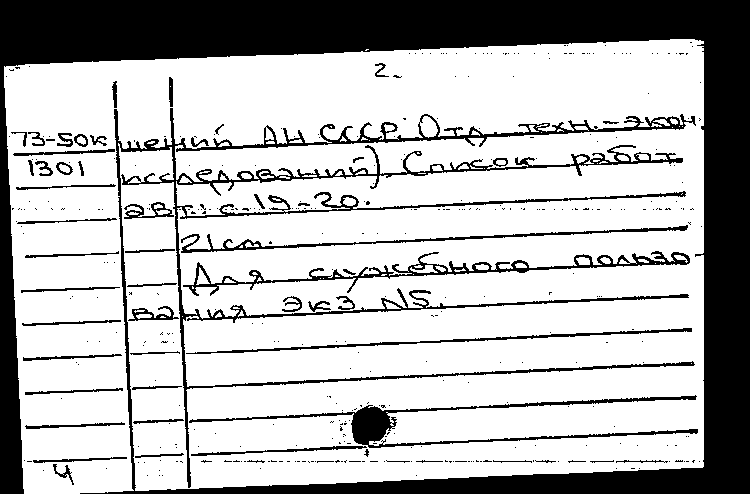 2.
73-50к щений АН СССР. Отд. техн.-экон.
1301 исследований). Список работ
авт.: с. 19-20.
21 см.
Для служебного пользо-
вания Экз. N5.
Ч